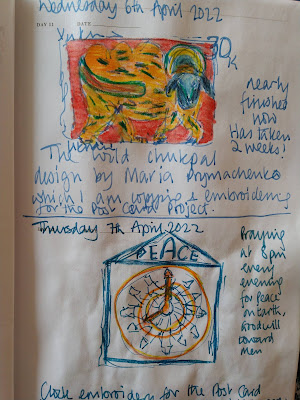 Wednesday 6th April 2022
DAY 11 DATE
30k
nearly
finished
now
Has taken
2 weeks!
The wild chukpal
design by Maria Prymachenko
which I am copying & embroidering
for the Post Card Project.
Thursday 7th April 2022
PEACE
Praying
at 8pm
every
evening
for peace
on Earth,
Goodwill
toward
men
Clock embroidery for the Post Card